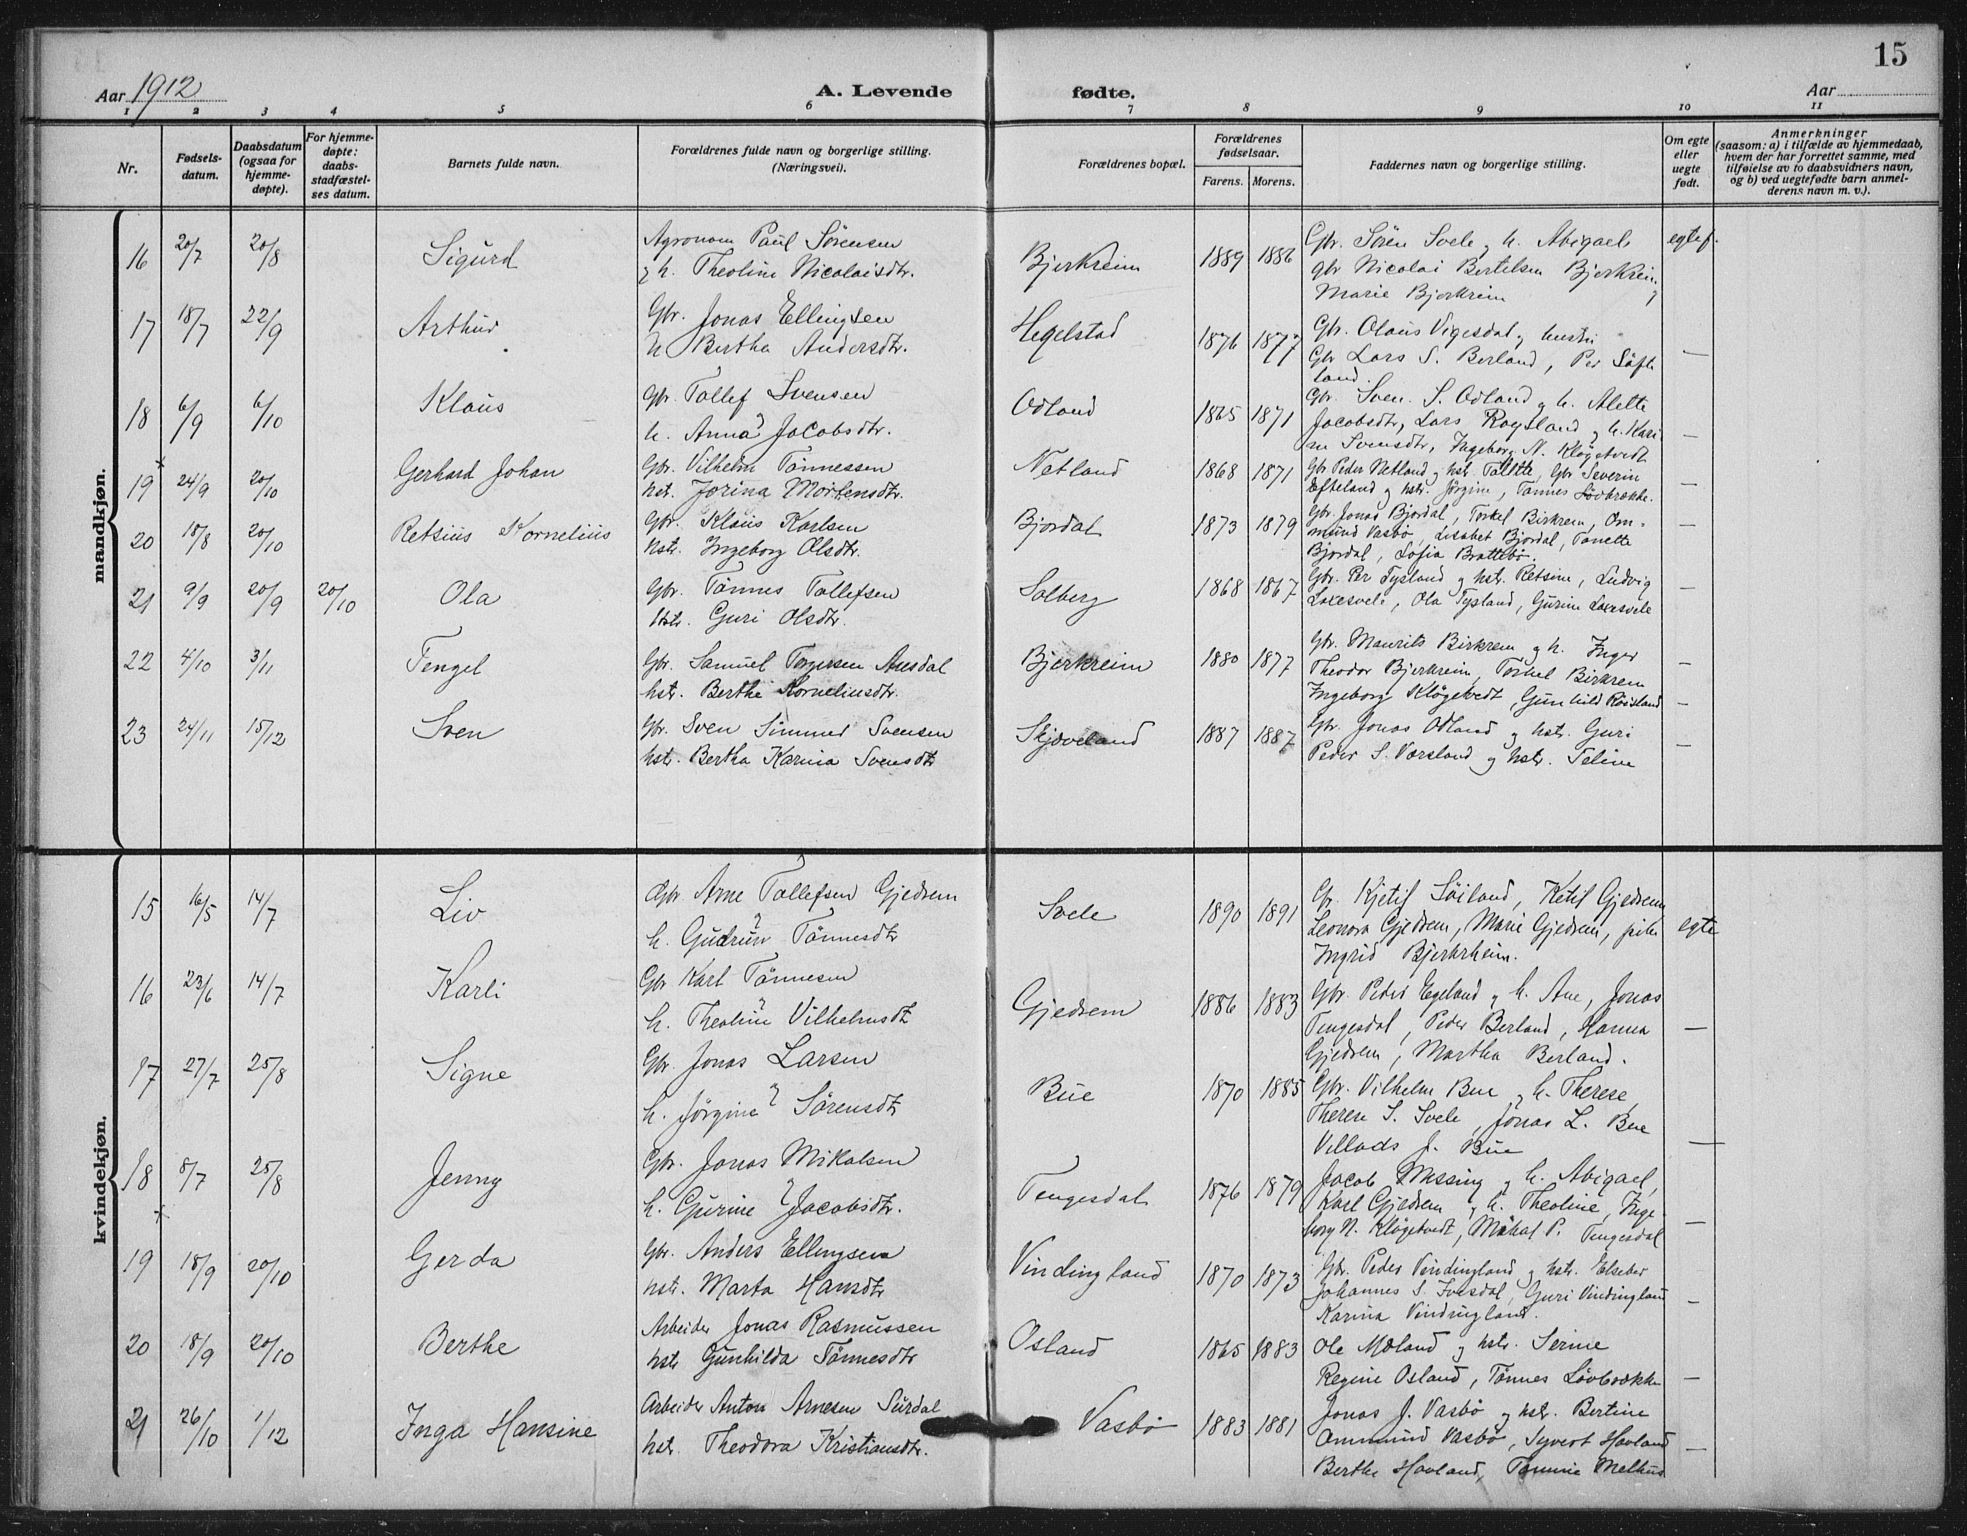 15
Aar 1912 A. Levende fødte. Aar
1 2 3 4 5 6 7 8 9 10 11
Nr.
Fødsels-
datum.
Daabsdatum
(ogsaa for
hjemme-
døpte).
For hjemme-
døpte:
daabs
stadfæstel-
ses datum.
Barnets fulde navn.
Forældrenes fulde navn og borgerlige stilling.
(Næringsvei).
Forældrenes bopæl.
Forældrenes
fødselsaar.
Farens. Morens.
Faddernes navn og borgerlige stilling.
Om egte
eller
uegte
født.
Anmerkninger
(saasom: a) i tilfælde av hjemmedaab,
hvem der har forrettet samme, med
tilføielse av to daabsvidners navn,
og b) ved uegtefødte barn anmel-
derens navn m. v.).
mandkjøn.
16 20/7 20/8 Sigurd
Agronom Paul Sørensen
og h. Theoline Nicolaisdtr.
Bjerkreim 1889 1886
Gbr. Søren Svele og h. Abigael
gbr Nicolai Bertelsen Bjerkreim
Marie Bjerkreim
egtef.
17 18/7 22/9 Arthur
Gbr. Jonas Ellingsen
h Bertha Andersdtr.
Hegelstad 1876 1877
Gbr. Olaus Vigesdal og hustru
Gbr Lars S. Berland, Per Søfte
land.
—
18 6/9 6/10 Klaus
gbr. Tollef Svensen
h. Anna Jacobsdtr.
Odland 1865 1871
Gbr. Sven S. Odland og h. Alette
Jacobsdtr, Lars Røysland og h. Kari
n Svensdtr, Ingeborg N. Kløgetvedt
—
19 24/9 20/10 Gerhard Johan
Gbr. Vilhelm Tønnessen
hst. Jorina Mortensdtr.
Netland 1868 1871
Gbr Peder Netland og hstr. Talette, Gbr Severin
Efteland og hstr. Jørgine, Tønnes Løvbrække.
—
20 18/8 20/10 Retsius Kornelius
Gbr. Klaus Karlsen
hstr. Ingeborg Olsdtr.
Bjordal 1873 1879
Gbr. Jonas Bjordal, Torkel Birkrem, Om=
mund Vasbø, Lisabet Bjordal, Tonette
Bjordal, Sofia Brattebø.
—
21 9/9 20/9 20/10 Ola
Gbr. Tønnes Tollefsen
hstr. Guri Olsdtr.
Solberg 1868 1867
Gbr. Per Tysland og hstr. Retsine, Ludvig
Laxesvele, Ola Tysland, Gurine Laxesvele
—
22 4/10 3/11 Tengel
Gbr. Samuel Torgersen Ausdal
hstr. Berthe Korneliusdtr.
Bjerkreim 1880 1877
Gbr. Maurits Birkrem og h. Inger
Theodor Bjerkreim, Torkel Birkrem
Ingeborg Kløgetvedt, Gunhild Røisland
—
23 24/11 15/12 Sven
Gbr. Sven Simmed Svensen
hstr. Bertha Karina Svensdtr
Skjæveland 1887 1887
Gbr. Jonas Odland og hstr. Guri
Peder S. Versland og hstr. Teline
—
kvindekjøn.
15 16/5 14/7 Liv
Gbr Arne Tollefsen Gjedrem
h. Gudrun Tønnesdtr
Svele 1890 1891
Gbr. Kjetil Søiland, Ketil Gjedrem
Leonora Gjedrem, Marie Gjedrem, pike
Ingrid Bjerkrheim.
egte
16 23/6 14/7 Karli
Gbr Karl Tønnesen
h. Theoline Vilhelmsdt
Gjedrem 1886 1883
Gbr. Peder Egeland og h. Ane, Jonas
Tengesdal, Peder Berland, Hanna
Gjedrem, Martha Berland.
—
17 27/7 25/8 Signe
Gbr. Jonas Larsen
h. Jørgine Sørensdt
Bue 1870 1885
Gbr. Vilhelm Bue og h. Therese,
Therese S. Svele, Jonas L. Bue
Villads J. Bue
—
18 8/7 25/8 Jenny
Gbr. Jonas Mikalsen
h. Gurine Jacobsdtr.
Tengesdal 1876 1879
Jacob Messing og h. Abigael,
Karl Gjedrem og h. Theoline, Inge
borg N. Kløgetvedt, Mikal P. Tengesdal
—
19 18/9 20/10 Gerda
Gbr. Anders Ellingsen
hstr. Marta Hansdtr
Vindingland 1870 1873
Gbr. Peder Vindingland og hstr. Elseber
Johannes S. Ivesdal, Guri Vindingland
Karina Vindingland.
—
20 18/9 20/10 Berthe
Arbeider Jonas Rasmussen
hstr Gunhilda Tønnesdtr
Osland 1865 1883
Ole Mæland og hstr. Serine
Regine Osland, Tønnes Løvbrække
—
21 26/10 1/12 Inga Hansine
Arbeider Anton Arnesen Surdal
hstr. Theodora Kristiansdtr.
Vasbø 1883 1881
Jonas J. Vasbø og hstr. Bertine
Ommund Vasbø, Syvert Hovland
Berthe Hovland, Tomine Melhus
—